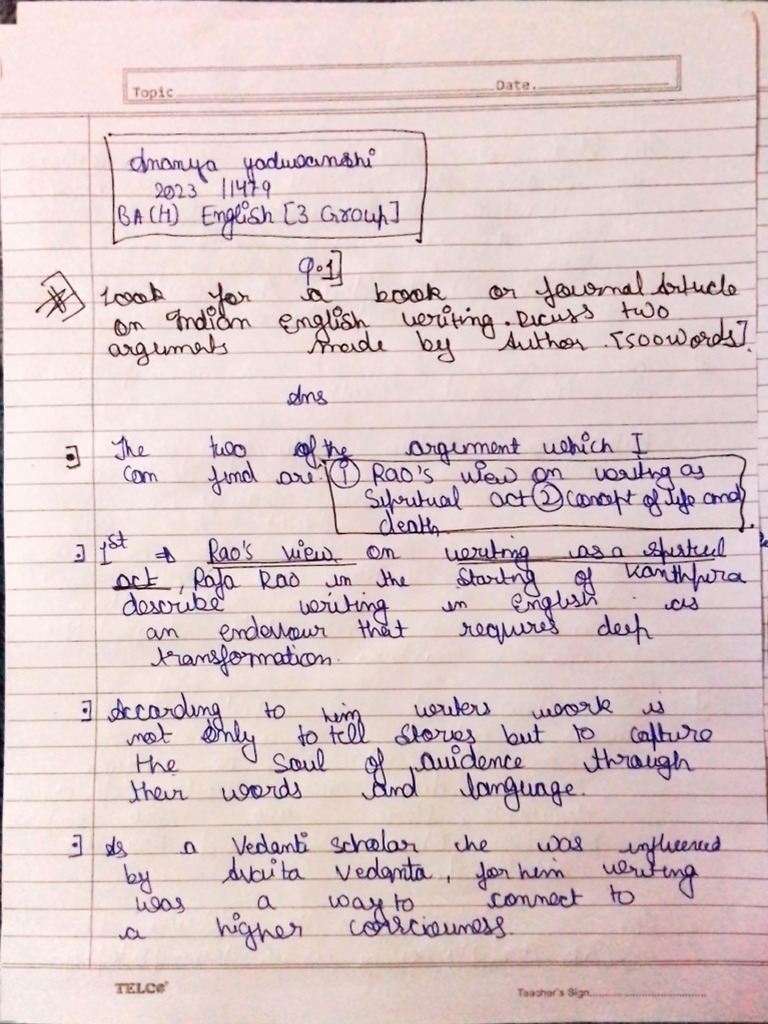 Topic Date.
Ananya Yaduwanshi
2023 /1479
BA(H) English [3 Group]
Q.1]
Look for a book or Journal Article
on Indian English writing. Dicuss two
arguments made by Author. [500 words].
Ans
The two of the argument which I
can find are: ① Rao's view on writing as
Spiritual act ② Concept of life and
death
1st → Rao's view on writing as a
act, Raja Rao in the Staring of Kanthpura
describe writing in English as
an endevour that requires deep
transformation.
According to him writers work is
not only to tell stories but to capture
the Soul of through
their words and language.
As a Vedanti scholar he was
by Vedanta, for him writing
was a way to connect to
a higher
TELCO
Teacher's Sign